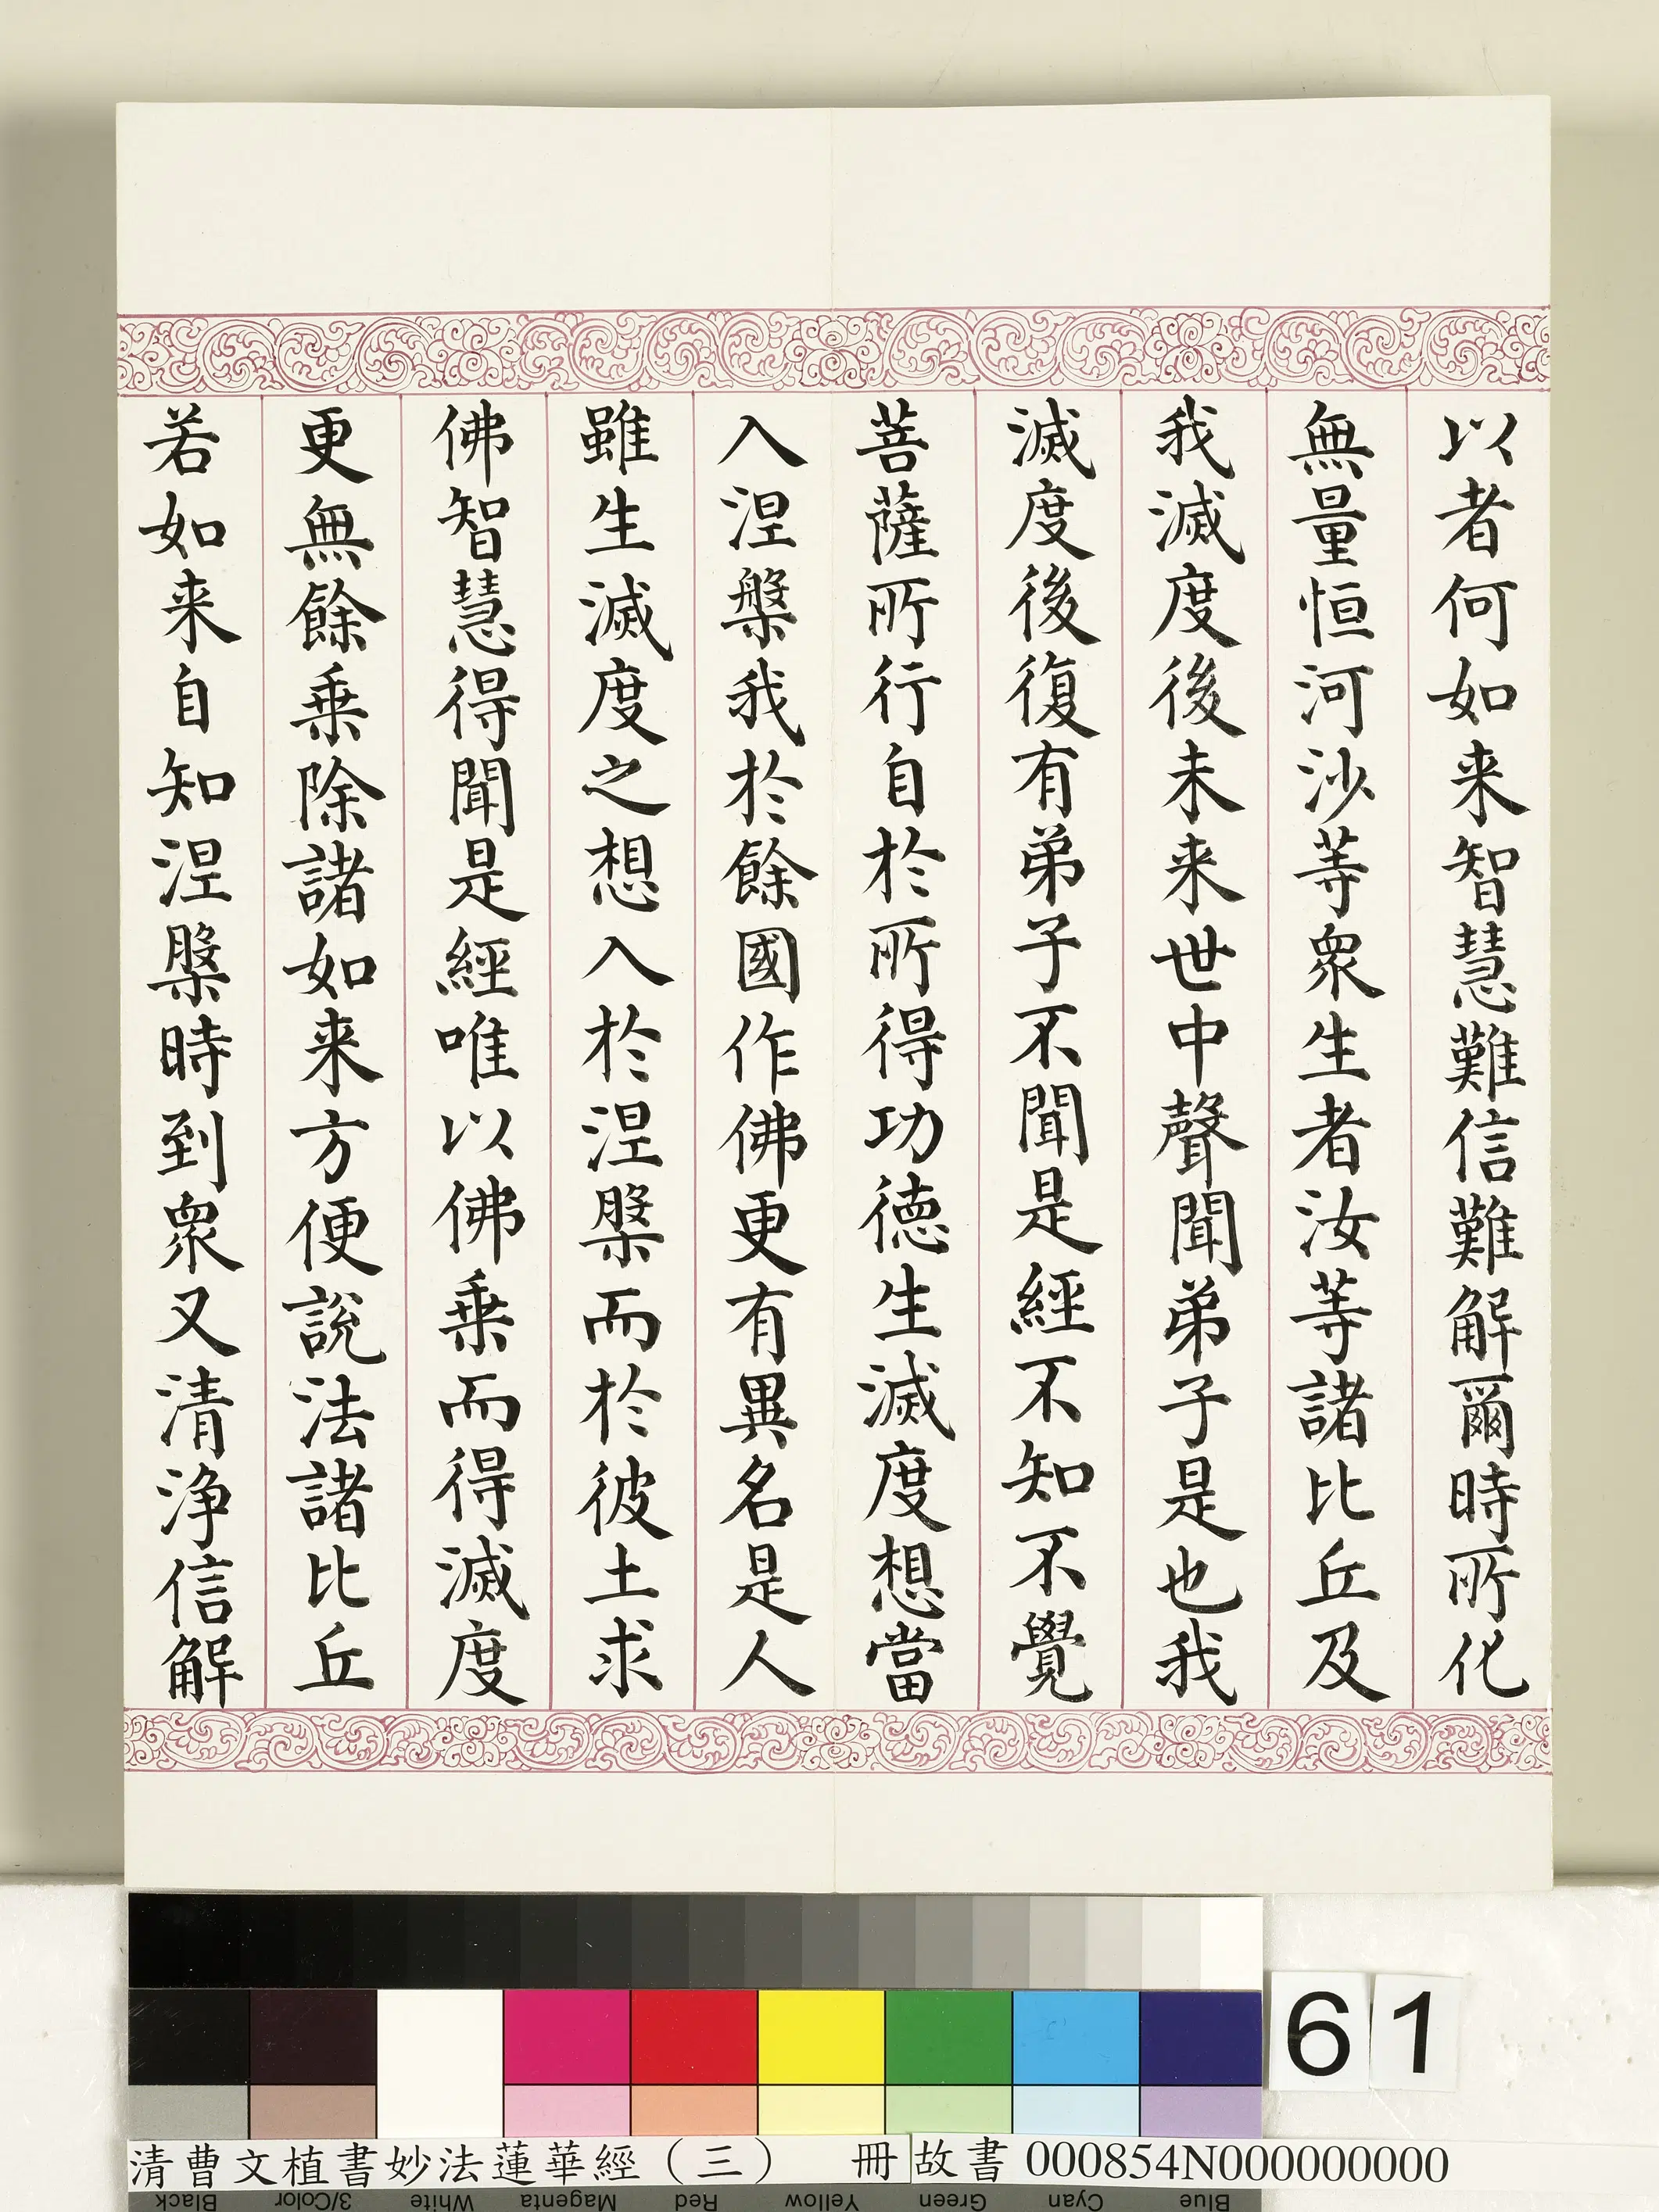 以者何如来智慧難信難解爾時所化
無量恒河沙等衆生者汝等諸比丘及
我滅度後未来世中聲聞弟子是也我
滅度後復有弟子不聞是經不知不覺
菩薩所行自於所得功德生滅度想當
入涅槃我於餘國作佛更有異名是人
雖生滅度之想入於涅槃而於彼土求
佛智慧得聞是經唯以佛乗而得滅度
更無餘乗除諸如来方便説法諸比丘
若如来自知涅槃時到衆又清浄信解
61
清曹文植書妙法蓮華經（三） 冊 故書 000854N000000000
Black 3/Color White Magenta Red Yellow Green Cyan Blue